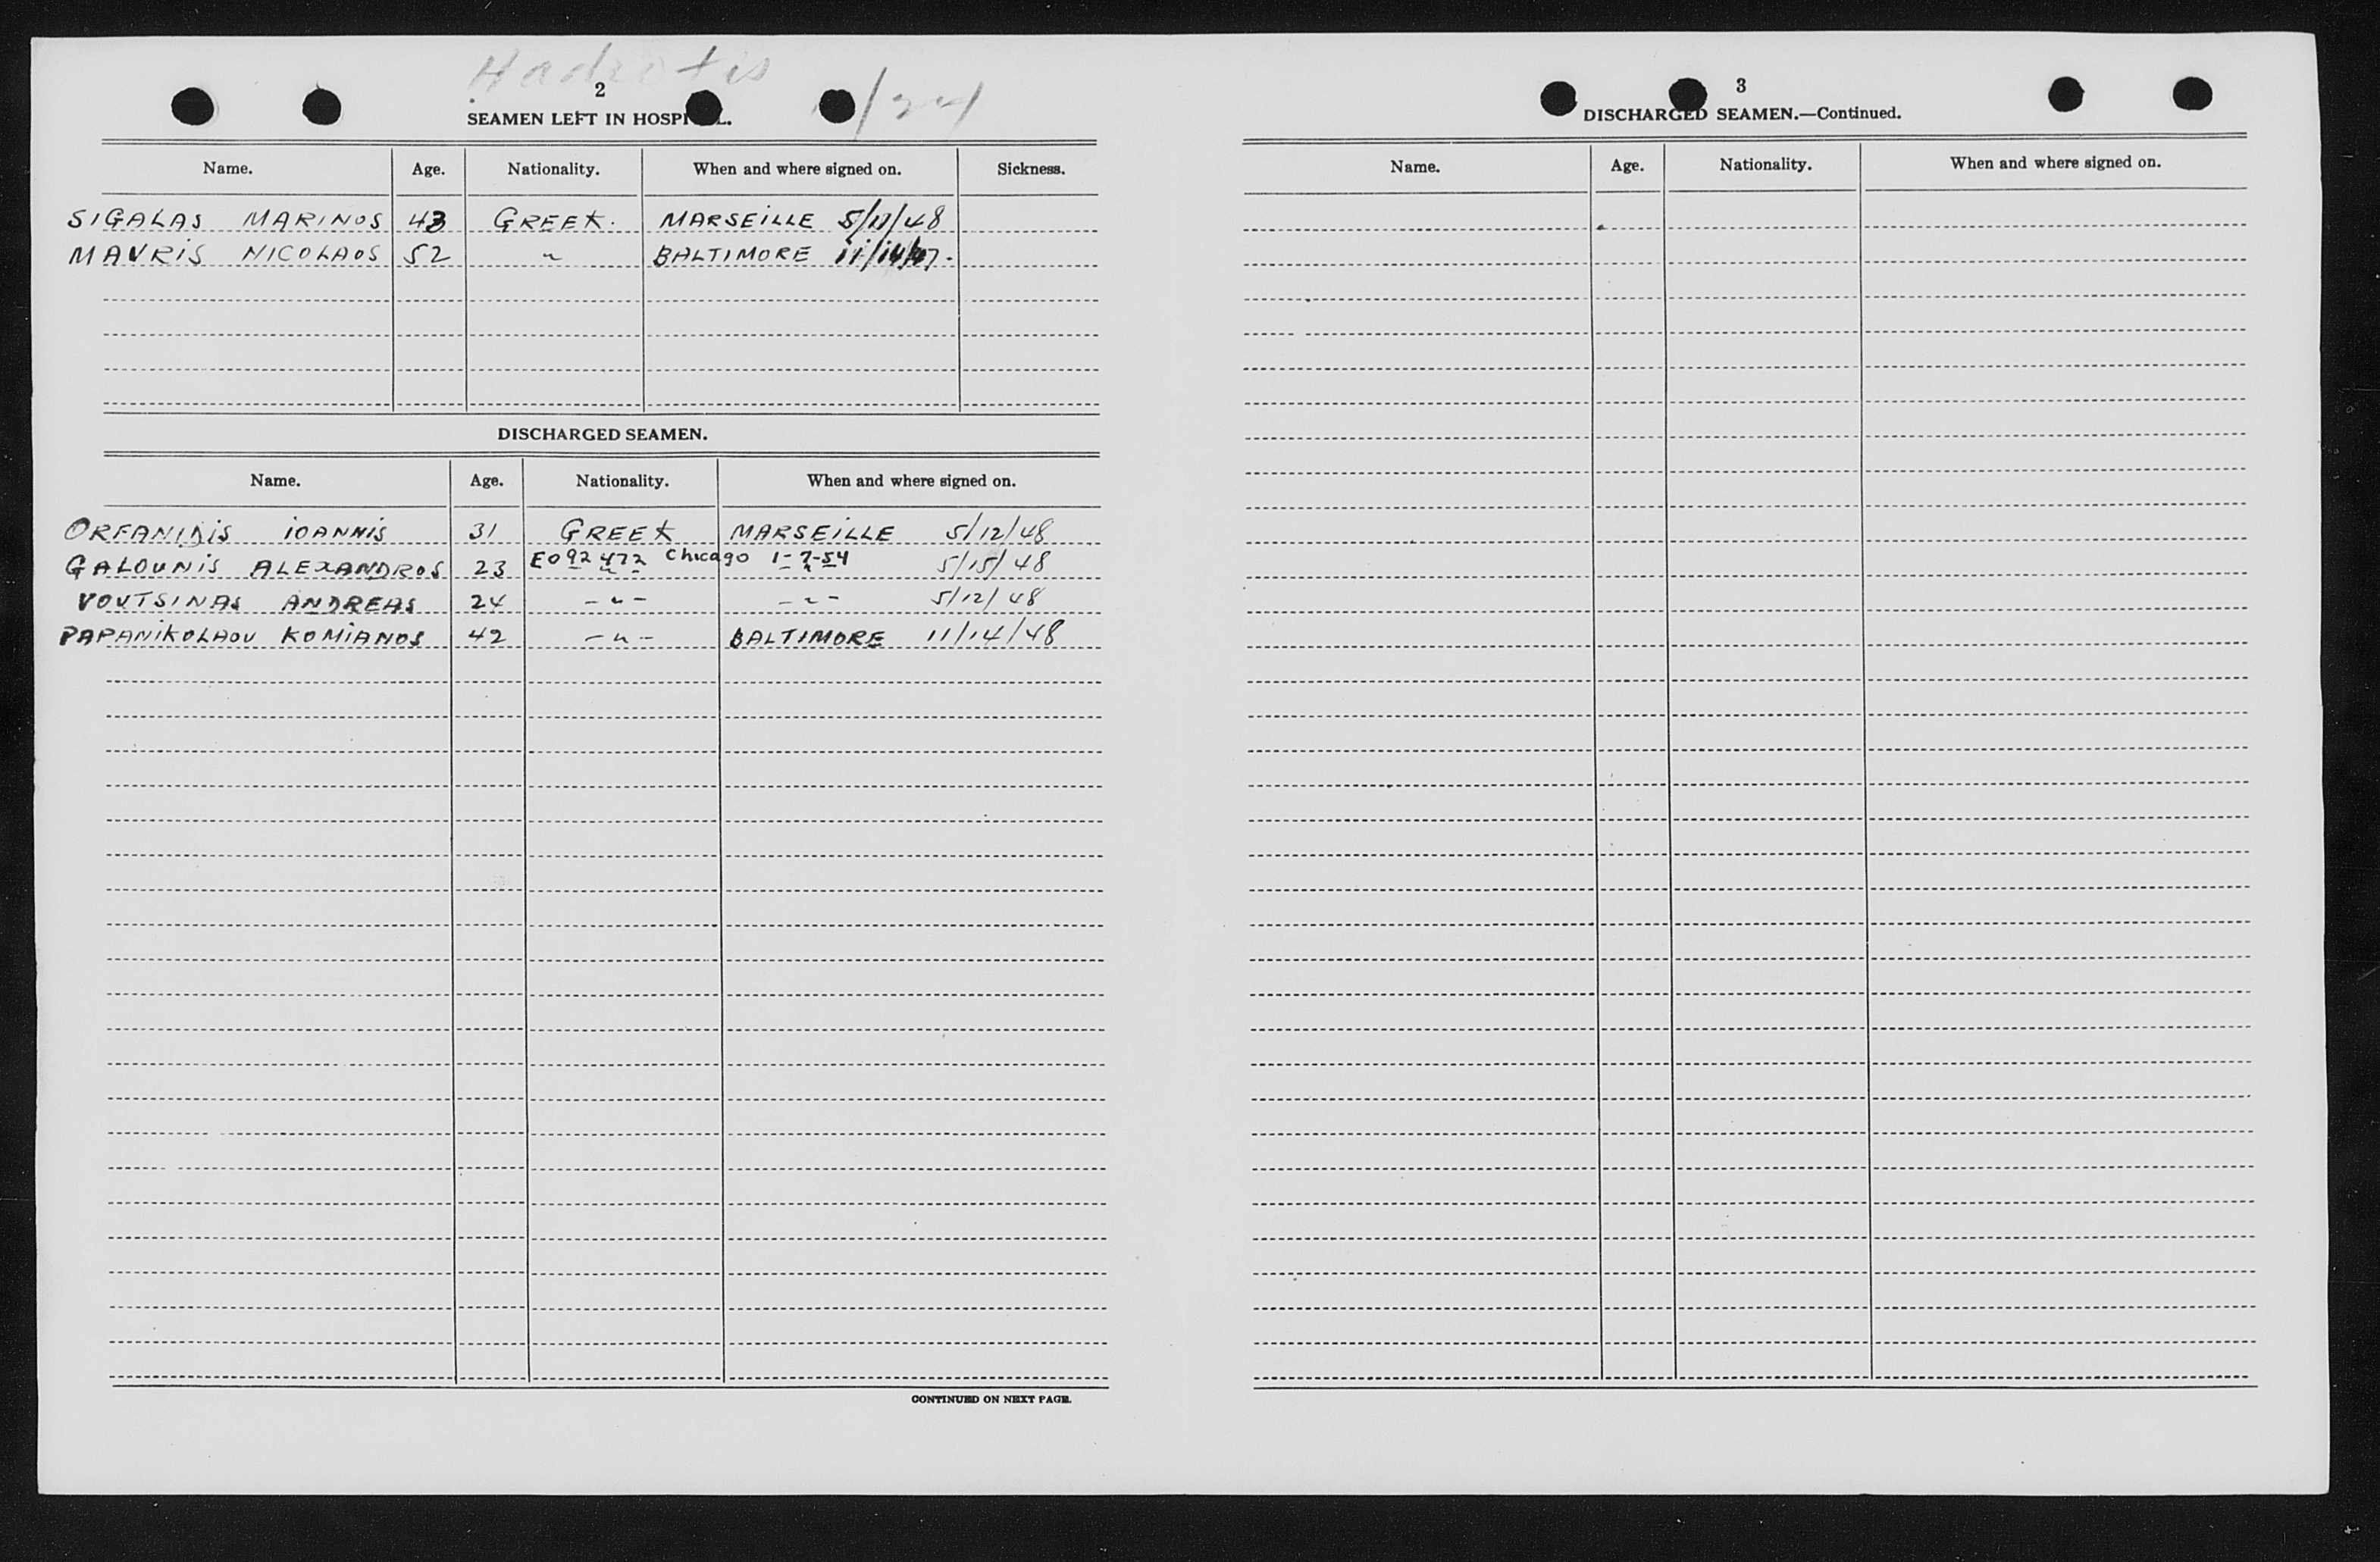 2
SEAMEN LEFT IN HOSPI L.
Name. Age. Nationality. When and where signed on. Sickness.
SIGALAS MARINOS 43 GREEK. MARSEILLE 5/11/48
MAVRIS NICOLAOS 52 " BALTIMORE 11/14/47.
DISCHARGED SEAMEN.
Name. Age. Nationality. When and where signed on.
ORFANIDIS IOANNIS 31 GREEK MARSEILLE 5/12/48
GALOUNIS ALEXANDROS 23 E092472 Chicago 1-7-54 5/15/48
VOUTSINAS ANDREAS 24 -"- -"- 5/12/48
PAPANIKOLAOU KOMIANOS 42 -"- BALTIMORE 11/14/48
CONTINUED ON NEXT PAGE.
3
DISCHARGED SEAMEN.—Continued.
Name. Age. Nationality. When and where signed on.